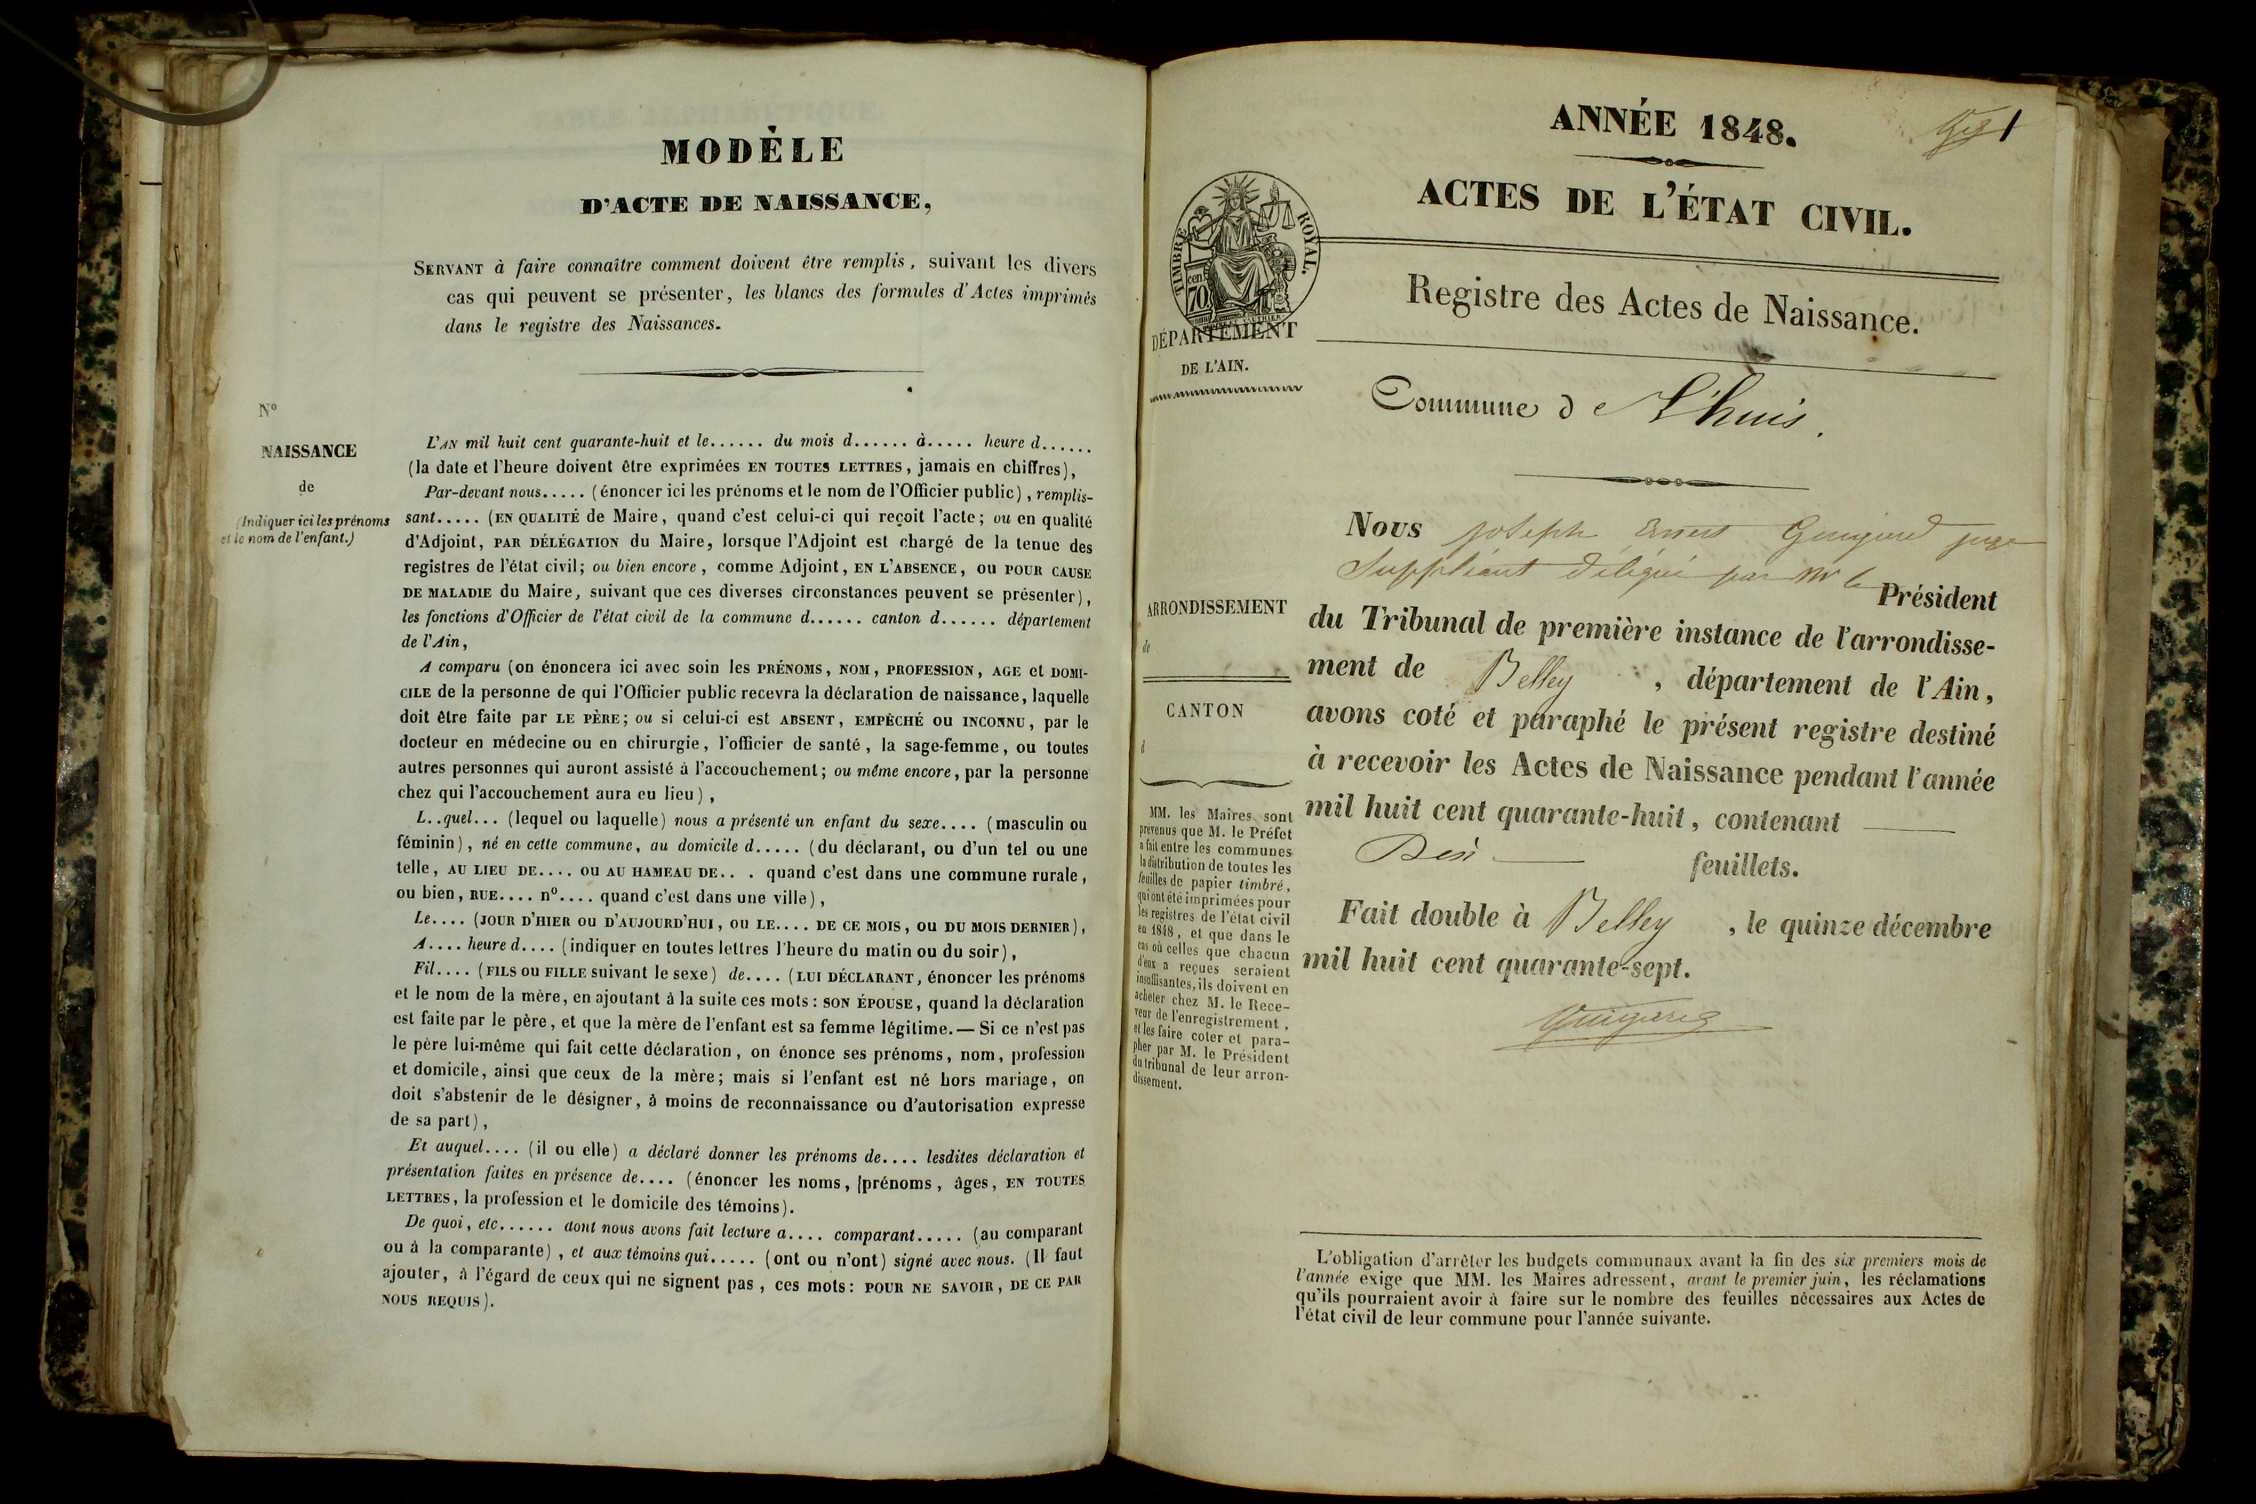 MODÈLE
D'ACTE DE NAISSANCE,
SERVANT à faire connaître comment doivent être remplis, suivant les divers
cas qui peuvent se présenter, les blancs des formules d'Actes imprimés
dans le registre des Naissances.
N°
NAISSANCE
de
(Indiquer ici les prénoms
et le nom de l'enfant.)
L'AN mil huit cent quarante-huit et le...... du mois d...... à..... heure d......
(la date et l'heure doivent être exprimées EN TOUTES LETTRES, jamais en chiffres),
Par-devant nous..... (énoncer ici les prénoms et le nom de l'Officier public), remplis-
sant..... (EN QUALITÉ de Maire, quand c'est celui-ci qui reçoit l'acte; ou en qualité
d'Adjoint, PAR DÉLÉGATION du Maire, lorsque l'Adjoint est chargé de la tenue des
registres de l'état civil; ou bien encore, comme Adjoint, EN L'ABSENCE, ou POUR CAUSE
DE MALADIE du Maire, suivant que ces diverses circonstances peuvent se présenter),
les fonctions d'Officier de l'état civil de la commune d...... canton d...... département
de l'Ain,
A comparu (on énoncera ici avec soin les PRÉNOMS, NOM, PROFESSION, AGE et DOMI-
CILE de la personne de qui l'Officier public recevra la déclaration de naissance, laquelle
doit être faite par LE PÈRE; ou si celui-ci est ABSENT, EMPÊCHÉ OU INCONNU, par le
docteur en médecine ou en chirurgie, l'officier de santé, la sage-femme, ou toutes
autres personnes qui auront assisté à l'accouchement; ou même encore, par la personne
chez qui l'accouchement aura eu lieu),
L..quel... (lequel ou laquelle) nous a présenté un enfant du sexe.... (masculin ou
féminin), né en cette commune, au domicile d..... (du déclarant, ou d'un tel ou une
telle, AU LIEU DE.... OU AU HAMEAU DE... quand c'est dans une commune rurale,
ou bien, RUE.... n°.... quand c'est dans une ville),
Le.... (JOUR D'HIER OU D'AUJOURD'HUI, OU LE.... DE CE MOIS, OU DU MOIS DERNIER),
A.... heure d.... (indiquer en toutes lettres l'heure du matin ou du soir),
Fil.... (FILS OU FILLE suivant le sexe) de.... (LUI DÉCLARANT, énoncer les prénoms
et le nom de la mère, en ajoutant à la suite ces mots: SON ÉPOUSE, quand la déclaration
est faite par le père, et que la mère de l'enfant est sa femme légitime.— Si ce n'est pas
le père lui-même qui fait cette déclaration, on énonce ses prénoms, nom, profession
et domicile, ainsi que ceux de la mère; mais si l'enfant est né hors mariage, on
doit s'abstenir de le désigner, à moins de reconnaissance ou d'autorisation expresse
de sa part),
Et auquel.... (il ou elle) a déclaré donner les prénoms de.... lesdites déclaration et
présentation faites en présence de.... (énoncer les noms, prénoms, âges, EN TOUTES
LETTRES, la profession et le domicile des témoins).
De quoi, etc...... dont nous avons fait lecture a.... comparant..... (au comparant
ou à la comparante), et aux témoins qui..... (ont ou n'ont) signé avec nous. (Il faut
ajouter, à l'égard de ceux qui ne signent pas, ces mots: POUR NE SAVOIR, DE CE PAR
NOUS REQUIS).
ANNÉE 1848.
1
ACTES DE L'ÉTAT CIVIL.
TIMBRE ROYAL.
70 cen
DÉPARTEMENT
DE L'AIN.
Registre des Actes de Naissance.
Commune de L'huis.
Nous joseph Ernest Guigard juge
Suppléant délégué par Mr le Président
du Tribunal de première instance de l'arrondisse-
ment de Belley, département de l'Ain,
avons coté et paraphé le présent registre destiné
à recevoir les Actes de Naissance pendant l'année
mil huit cent quarante-huit, contenant
feuillets.
Fait double à Belley, le quinze décembre
mil huit cent quarante-sept.
Guigard
ARRONDISSEMENT
de
CANTON
d
MM. les Maires sont
prévenus que M. le Préfet
a fait entre les communes
la distribution de toutes les
feuilles de papier timbré,
qui ont été imprimées pour
les registres de l'état civil
en 1848, et que dans le
cas où celles que chacun
d'eux a reçues seraient
insuffisantes, ils doivent en
acheter chez M. le Rece-
veur de l'enregistrement,
et les faire coter et para-
pher par M. le Président
du tribunal de leur arron-
dissement.
L'obligation d'arrêter les budgets communaux avant la fin des six premiers mois de
l'année exige que MM. les Maires adressent, avant le premier juin, les réclamations
qu'ils pourraient avoir à faire sur le nombre des feuilles nécessaires aux Actes de
l'état civil de leur commune pour l'année suivante.